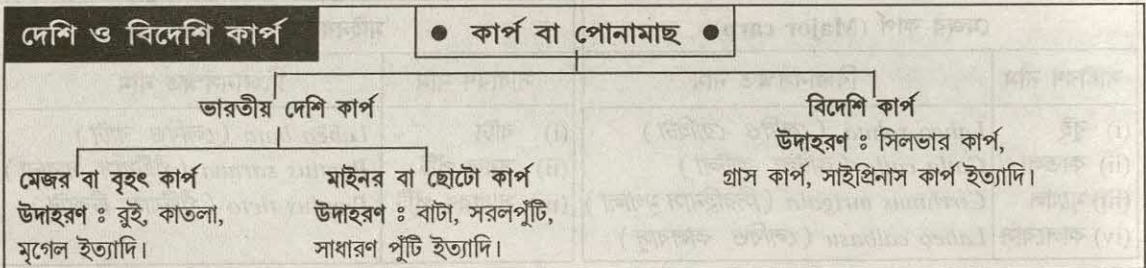 দেশি ও বিদেশি কার্প
● কার্প বা পোনামাছ ●
ভারতীয় দেশি কার্প
বিদেশি কার্প
উদাহরণ ঃ সিলভার কার্প,
গ্রাস কার্প, সাইপ্রিনাস কার্প ইত্যাদি।
মেজর বা বৃহৎ কার্প
উদাহরণ ঃ রুই, কাতলা,
মৃগেল ইত্যাদি।
মাইনর বা ছোটো কার্প
উদাহরণ ঃ বাটা, সরলপুঁটি,
সাধারণ পুঁটি ইত্যাদি।